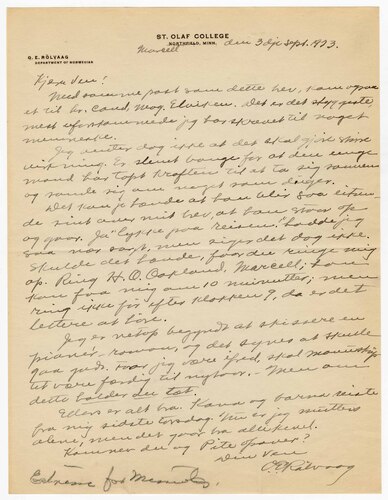 ST. OLAF COLLEGE
NORTHFIELD, MINN.
O. E. RÖLVAAG
DEPARTMENT OF NORWEGIAN
Marcell den 3dje Sept. 1923.
Kjære Ven!
Med samme post som dette brev, kommer ogsaa
et til hr. Cand. Mag. Elvik en. Det er det styggeste,
mest uforskammede jeg har skrevet til noget
menneske.
Jeg venter dog ikke at det skal gjøre stor
virkning. Er slemt bange for at den unge
mand har tapt kraften til at ta sig sammen
og samle sig om noget som duger.
Det kan jo hænde at han blir saa
sint over mit brev, at han staar op
og gaar. Ja lykke paa reisen, hadde jeg
saa nær sagt, men siger det dog ikke.
Skulde det hænde, faar du ringe mig
op. Ring H. O. Oakland, Marcell; han
kan faa mig om 10 minutter; men
ring ikke før efter klokken 7, da er det
lettere at
Jeg er netop begyndt at skissere en
pioner-roman, og det synes at skulle
gaa godt. Faar jeg være i fred, skal manuskriptet
være færdig til nytaar. - Men om
dette holder du tæt.
Ellers er alt bra. Kona og barna reiste
fra mig sidste torsdag. Nu er jeg mutters
alene, men det gaar bra allikevel.
Kommer du og Pete opover?
Din Ven
O E Rölvaag